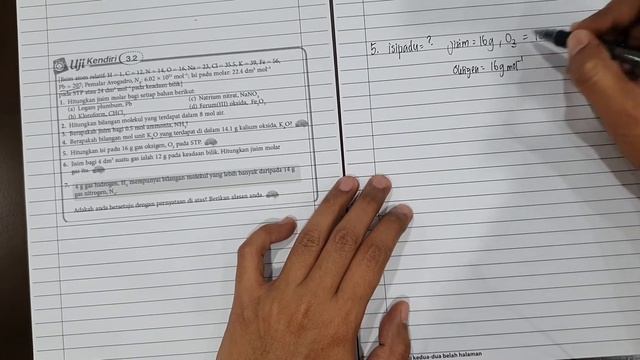 Uji Kendiri 3.2
[Jisim atom relatif: H = 1, C = 12, N = 14, O = 16, Na = 23, Cl = 35.5, K = 39, Fe = 56,
Pb = 207; Pemalar Avogadro, N : 6.02 × 10²³ mol⁻¹; Isi padu molar: 22.4 dm³ mol⁻¹
pada STP atau 24 dm³ mol⁻¹ pada keadaan bilik]
1. Hitungkan jisim molar bagi setiap bahan berikut:
(a) Logam plumbum, Pb (c) Natrium nitrat, NaNO₃
(b) Kloroform, CHCl₃ (d) Ferum(III) oksida, Fe₂O₃
2. Hitungkan bilangan molekul yang terdapat dalam 8 mol air.
3. Berapakah jisim bagi 0.5 mol ammonia, NH₃?
4. Berapakah bilangan mol unit K₂O yang terdapat di dalam 14.1 g kalium oksida, K₂O?
5. Hitungkan isi padu 16 g gas oksigen, O₂ pada STP.
6. Jisim bagi 4 dm³ suatu gas ialah 12 g pada keadaan bilik. Hitungkan jisim molar
gas itu.
7. 4 g gas hidrogen, H₂ mempunyai bilangan molekul yang lebih banyak daripada 14 g
gas nitrogen, N₂.
Adakah anda bersetuju dengan pernyataan di atas? Berikan alasan anda.
5. isipadu = ? jisim = 16g, O₂ =
Oksigen = 16g mol⁻¹
kedua-dua belah halaman